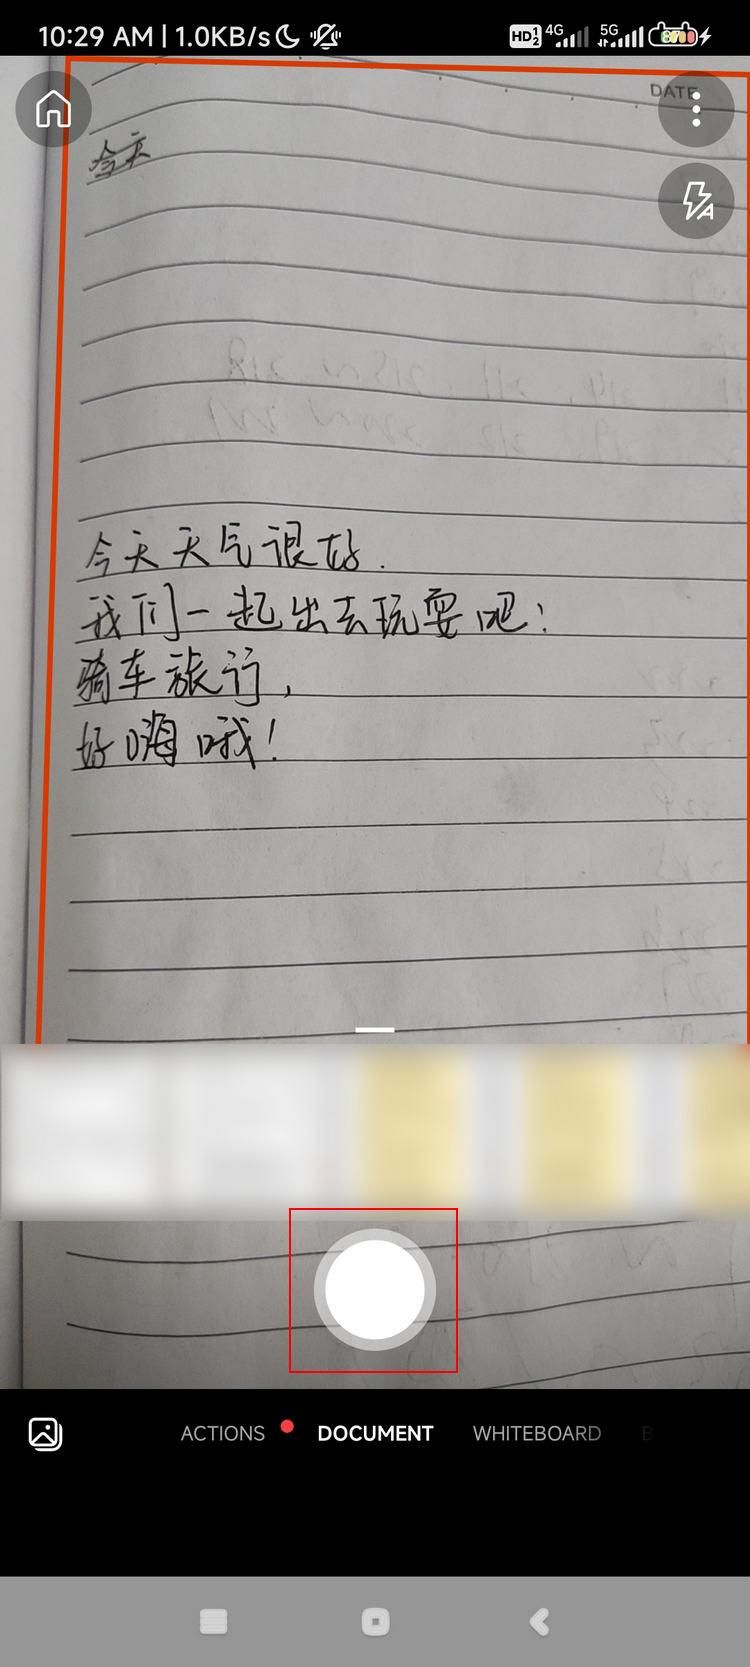 10:29 AM | 1.0KB/s HD 1 2 4G 5G
DATE
今天
今天天气很好.
我们一起出去玩耍吧!
骑车旅行,
好嗨哦!
ACTIONS DOCUMENT WHITEBOARD